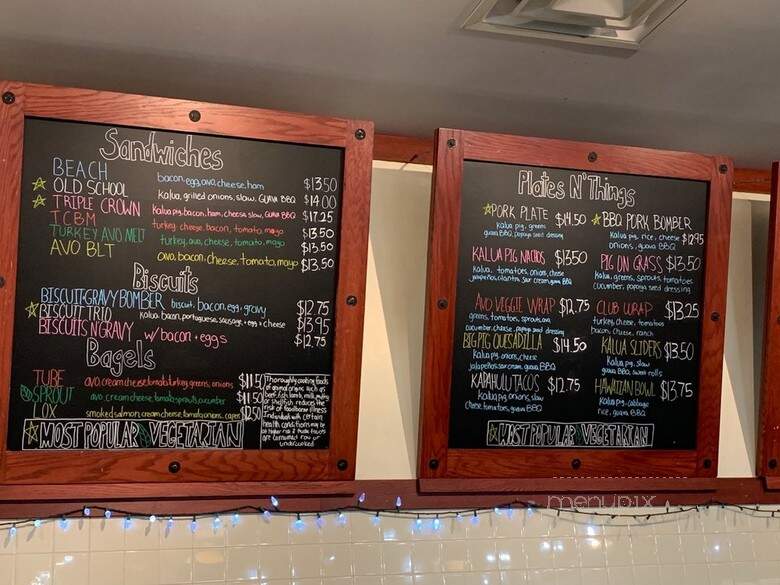 Sandwiches
BEACH bacon, egg, avo, cheese, ham $13.50
☆ OLD SCHOOL Kalua, grilled onions, slaw, GUAVA BBQ $14.00
☆ TRIPLE CROWN Kalua pig, bacon, ham, cheese, slaw, GUAVA BBQ $17.25
TCBM turkey, cheese, bacon, tomato, mayo $13.50
TURKEY AVO MELT turkey, avo, cheese, tomato, mayo $13.50
AVO BLT avo, bacon, cheese, tomato, mayo $13.50
Biscuits
BISCUIT+GRAVY BOMBER biscuit, bacon, egg, gravy $12.75
☆ BISCUIT TRIO Kalua, bacon, portuguese sausage, egg + cheese $13.95
BISCUITS N GRAVY w/ bacon + eggs $12.75
Bagels
TUBE avo, cream cheese, tomato, turkey, greens, onions $11.50
SPROUT avo, cream cheese, tomato, sprouts, cucumber $11.50
LOX smoked salmon, cream cheese, tomato, onions, capers $12.50
Thoroughly cooking foods
of animal origins such as
beef, fish, lamb, milk, poultry
or shellfish reduces the
risk of foodborne illness
Individuals with certain
health conditions may be
at higher risk if these foods
are consumed raw or
undercooked
☆ MOST POPULAR VEGETARIAN
Plates N' Things
☆ PORK PLATE $14.50
Kalua pig, greens
guava BBQ, papaya seed dressing
☆ BBQ PORK BOMBER
Kalua pig, rice, cheese $12.95
onions, guava BBQ
KALUA PIG NACHOS $13.50
Kalua, tomatoes, onions, cheese
jalapeños, cilantro, sour cream, guava BBQ
PIG ON GRASS $13.50
Kalua, greens, sprouts, tomatoes
cucumber, papaya seed dressing
AVO VEGGIE WRAP $12.75
greens, tomatoes, sprouts, avo
cucumber, cheese, papaya seed dressing
CLUB WRAP $13.25
turkey, cheese, tomatoes
bacon, cheese, ranch
BIG PIG QUESADILLA $14.50
Kalua pig, onions, cheese
jalapeños, sour cream, guava BBQ
KALUA SLIDERS $13.50
Kalua pig, slaw
guava BBQ, sweet rolls
KAPAHULU TACOS $12.75
Kalua pig, onions, slaw
cheese, tomatoes, guava BBQ
HAWAIIAN BOWL $13.75
Kalua pig, cabbage
rice, guava BBQ
☆ MOST POPULAR VEGETARIAN
menupix